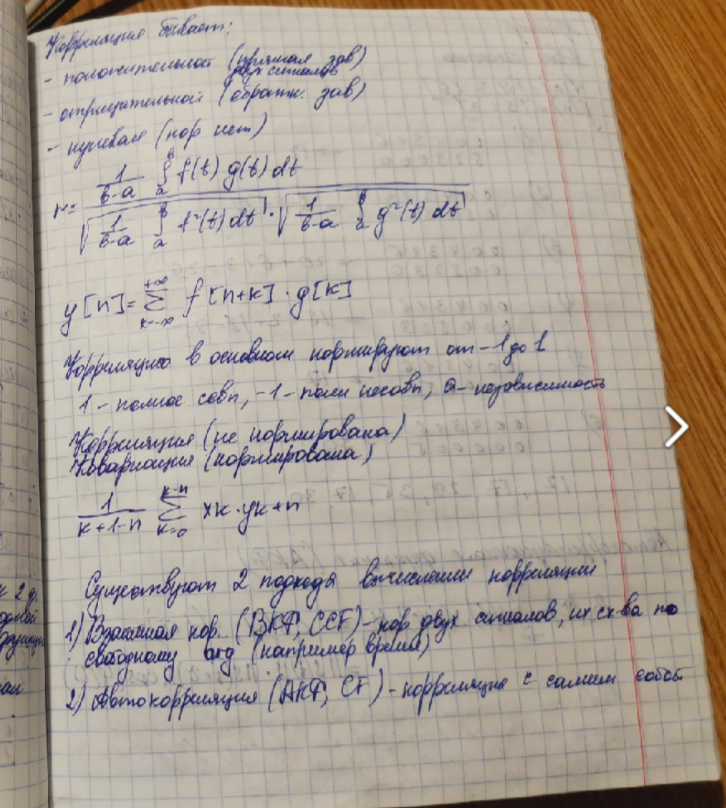 Корреляция бывает:
- положительной (прямая зав)
двух сигналов
- отрицательной (обратн. зав)
- нулевая (кор нет)
r = \frac{\frac{1}{b-a} \int_a^b f(t) g(t) dt}{\sqrt{\frac{1}{b-a} \int_a^b f^2(t) dt} \cdot \sqrt{\frac{1}{b-a} \int_a^b g^2(t) dt}}
y[n] = \sum_{k=-\infty}^{+\infty} f[n+k] \cdot g[k]
Корреляцию в основном нормируют от -1 до 1
1 - полное совп, -1 - полн несовп, 0 - независимость
Корреляция (не нормирована)
Ковариация (нормирована)
\frac{1}{k+1-n} \sum_{k=0}^{k-n} xk \cdot yk+n
Существуют 2 подхода вычислении корреляции
1) Взаимная кор. (ВКФ, CCF) - кор двух сигналов, их сх-ва по
свободному арг (например время)
2) Автокорреляция (АКФ, CF) - корреляция с самим собой